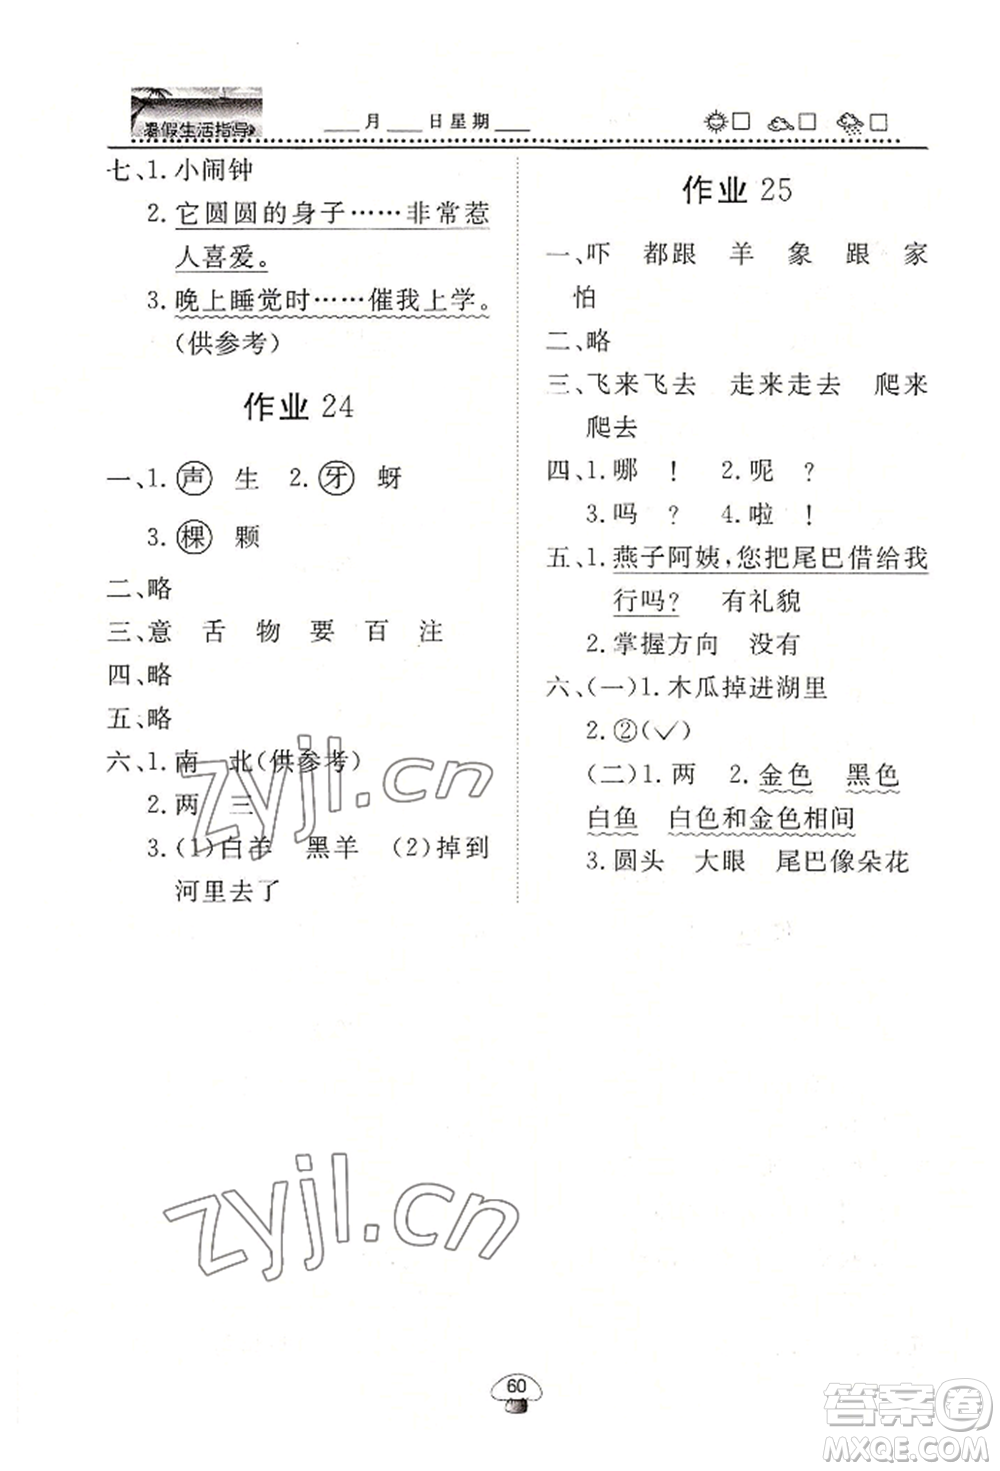 暑假生活指导
___月___日星期___
七、1. 小闹钟
2. 它圆圆的身子……非常惹
人喜爱。
3. 晚上睡觉时……催我上学。
(供参考)
作业 24
一、1. 声 生 2. 牙 蚜
3. 棵 颗
二、略
三、意 舌 物 要 百 注
四、略
五、略
六、1. 南 北(供参考)
2. 两 三
3. (1)白羊 黑羊 (2)掉到
河里去了
作业 25
一、吓 都跟 羊 象 跟 家
怕
二、略
三、飞来飞去 走来走去 爬来
爬去
四、1. 哪 ！ 2. 呢 ？
3. 吗 ？ 4. 啦 ！
五、1. 燕子阿姨,您把尾巴借给我
行吗? 有礼貌
2. 掌握方向 没有
六、(一)1. 木瓜掉进湖里
2. ②(✓)
(二)1. 两 2. 金色 黑色
白鱼 白色和金色相间
3. 圆头 大眼 尾巴像朵花
zyjl.cn
zyjl.cn
60
答案圈
MXQE.COM